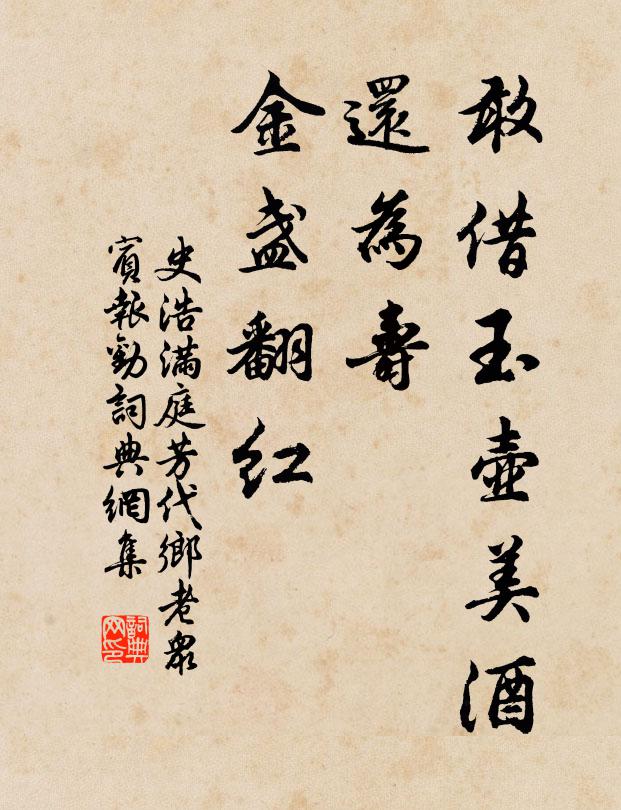 敢借玉壺美酒
還為壽
金盞翻紅
史浩滿庭芳代鄉老眾
賓報勸詞典網集
詞典网印